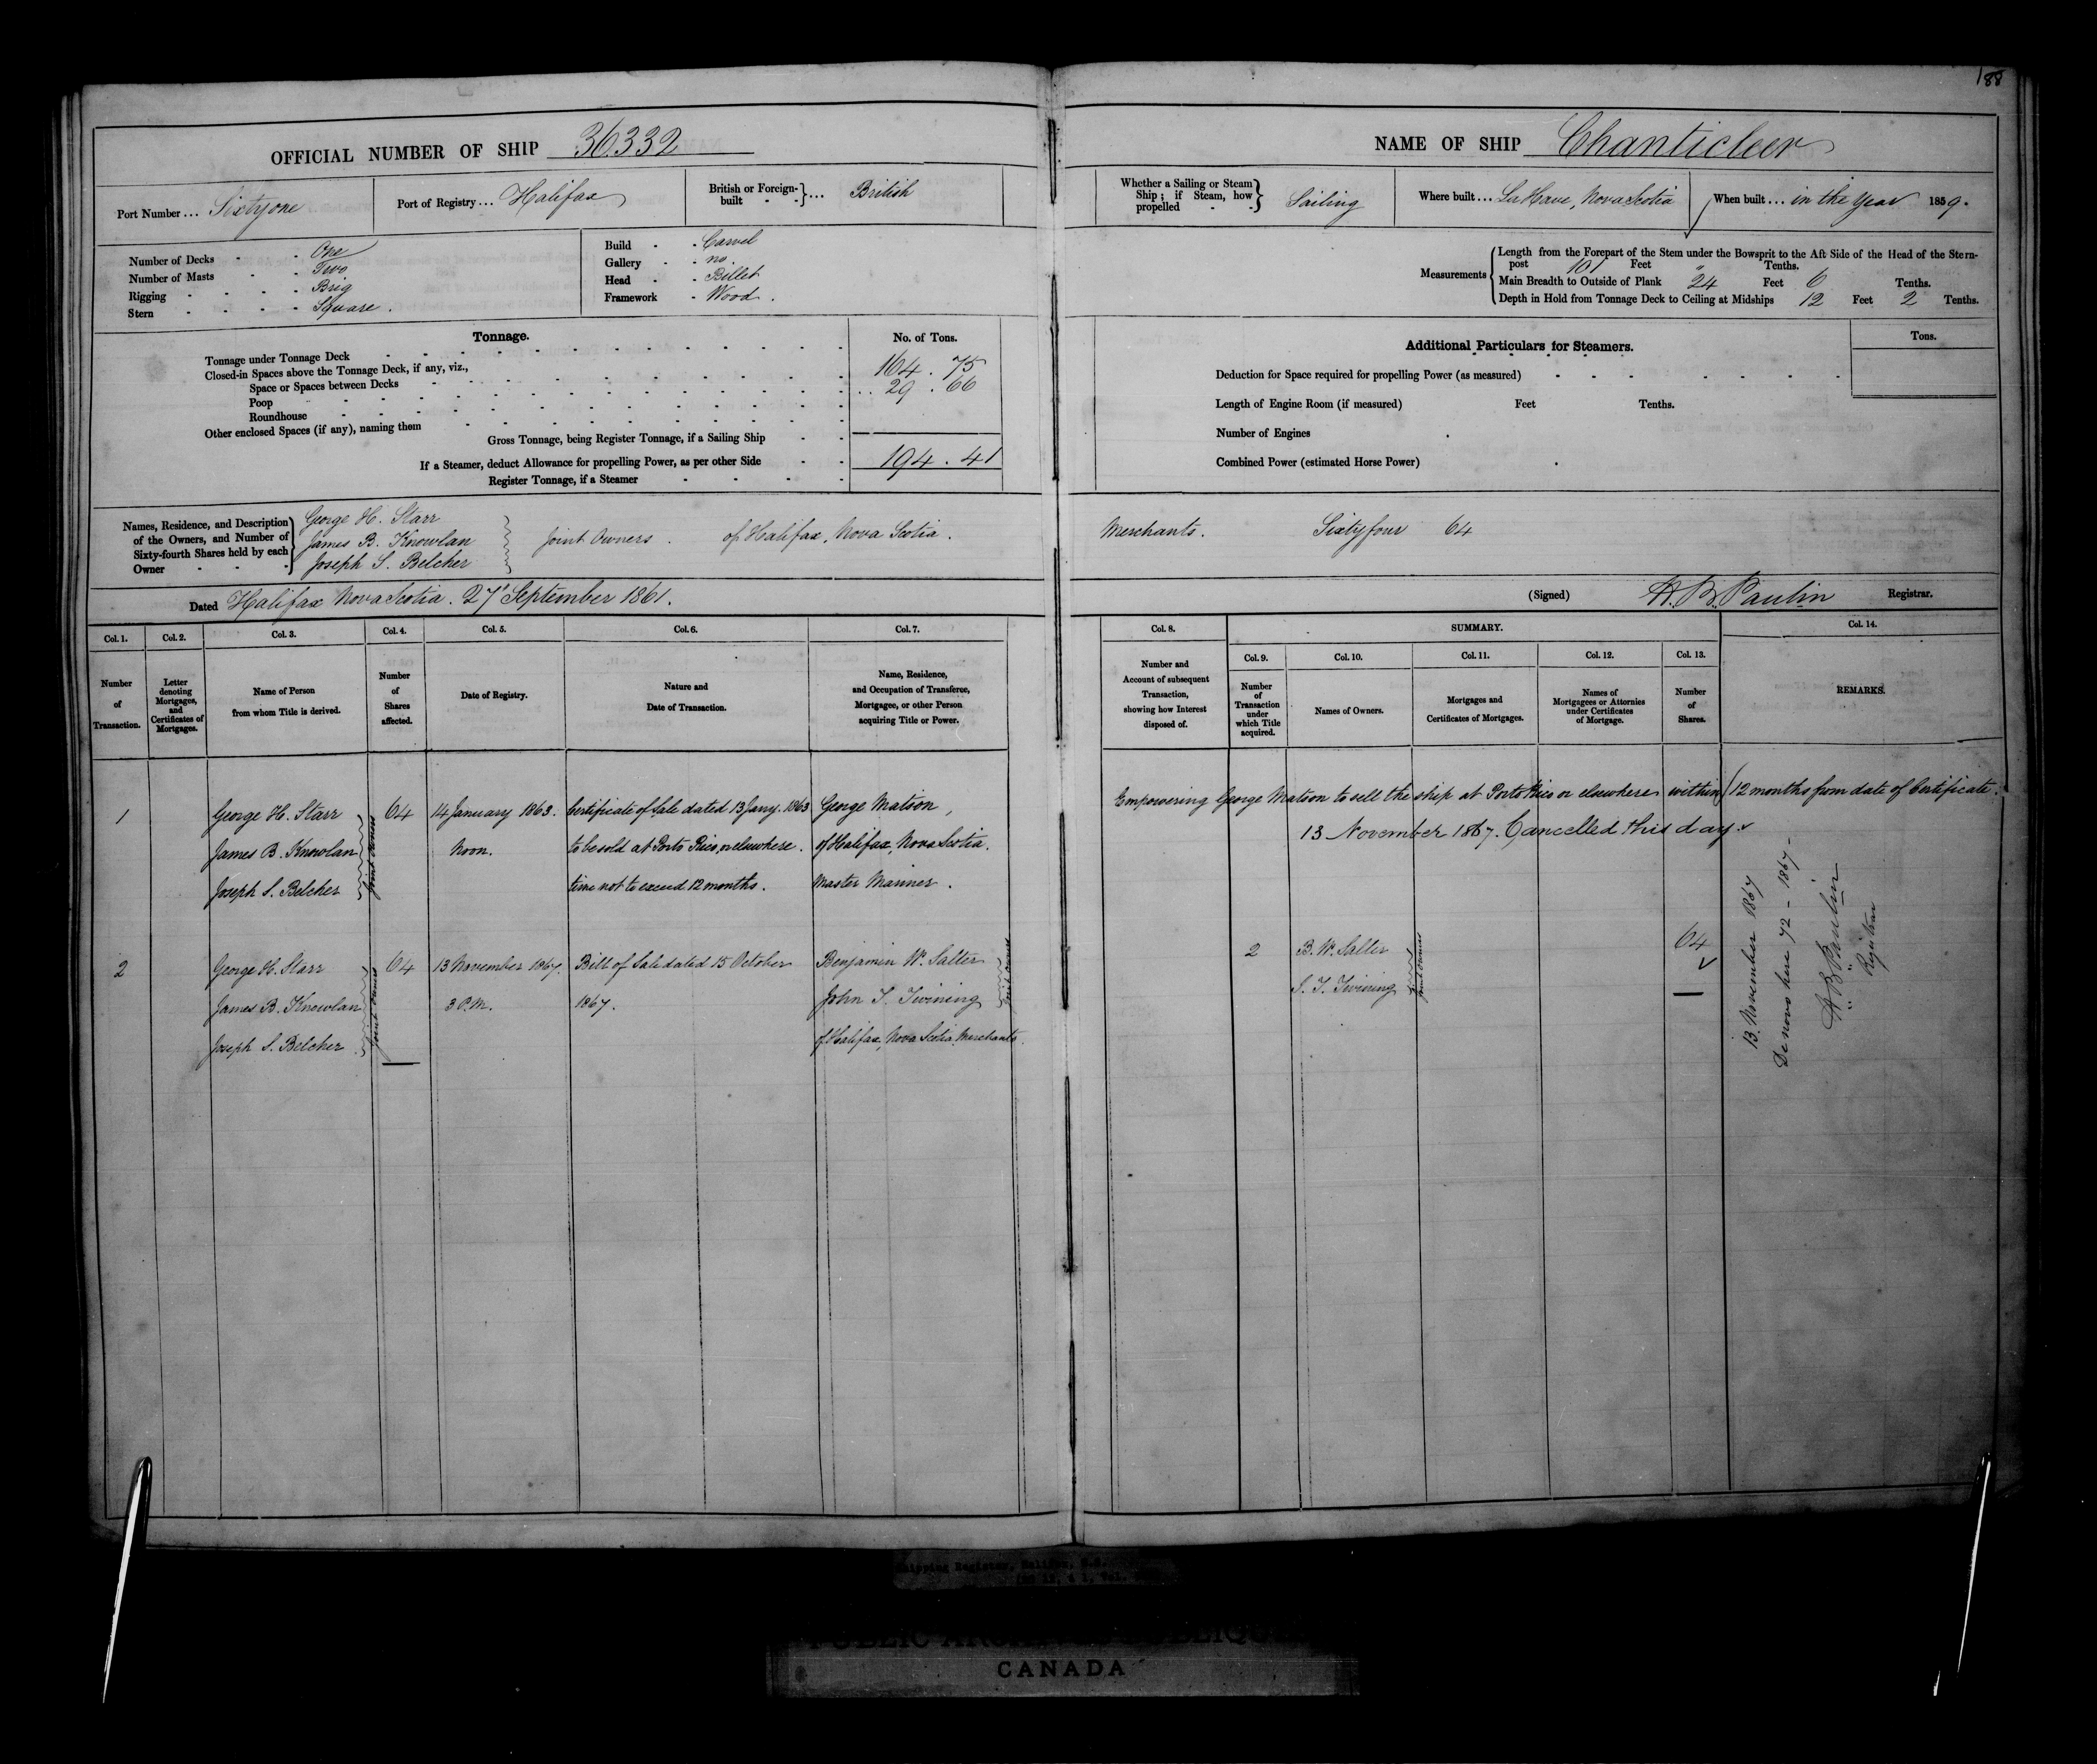 188
OFFICIAL NUMBER OF SHIP 36332
Port Number ... Sixtyone
Port of Registry ... Halifax
British or Foreign-built } ... British
Number of Decks - One
Number of Masts - Two
Rigging - Brig
Stern - Square.
Build - Carvel
Gallery - no.
Head - Billet
Framework - Wood.
Tonnage.
No. of Tons.
Tonnage under Tonnage Deck 164.75
Closed-in Spaces above the Tonnage Deck, if any, viz.,
Space or Spaces between Decks 29.66
Poop
Roundhouse
Other enclosed Spaces (if any), naming them
Gross Tonnage, being Register Tonnage, if a Sailing Ship
If a Steamer, deduct Allowance for propelling Power, as per other Side 194.41
Register Tonnage, if a Steamer
NAME OF SHIP Chanticleer
Whether a Sailing or Steam Ship; if Steam, how propelled } Sailing
Where built ... La Have, Nova Scotia
When built ... in the Year 1859.
Measurements
Length from the Forepart of the Stem under the Bowsprit to the Aft Side of the Head of the Stern-
post 101 Feet " Tenths.
Main Breadth to Outside of Plank 24 Feet 6 Tenths.
Depth in Hold from Tonnage Deck to Ceiling at Midships 12 Feet 2 Tenths.
Additional Particulars for Steamers.
Tons.
Deduction for Space required for propelling Power (as measured)
Length of Engine Room (if measured) Feet Tenths.
Number of Engines
Combined Power (estimated Horse Power)
Names, Residence, and Description of the Owners, and Number of Sixty-fourth Shares held by each Owner
George H. Starr
James B. Knowlan
Joseph S. Belcher
Joint Owners. of Halifax, Nova Scotia. Merchants. Sixty four 64
Dated Halifax Nova Scotia. 27 September 1861.
(Signed) H. B. Paulin Registrar.
Col. 1. Number of Transaction.
Col. 2. Letter denoting Mortgages, and Certificates of Mortgages.
Col. 3. Name of Person from whom Title is derived.
Col. 4. Number of Shares affected.
Col. 5. Date of Registry.
Col. 6. Nature and Date of Transaction.
Col. 7. Name, Residence, and Occupation of Transferee, Mortgagee, or other Person acquiring Title or Power.
Col. 8. Number and Account of subsequent Transaction, showing how Interest disposed of.
SUMMARY.
Col. 9. Number of Transaction under which Title acquired.
Col. 10. Names of Owners.
Col. 11. Mortgages and Certificates of Mortgages.
Col. 12. Names of Mortgagees or Attornies under Certificates of Mortgage.
Col. 13. Number of Shares.
Col. 14. REMARKS.
1 George H. Starr 64 14 January 1863. Certificate of Sale dated 13 Jany. 1863 George Matson,
James B. Knowlan Noon. to be sold at Porto Rico, or elsewhere. of Halifax, Nova Scotia.
Joseph S. Belcher time not to exceed 12 months. Master Mariner.
Joint Owners
Empowering George Matson to sell the ship at Porto Rico or elsewhere within 12 months from date of Certificate.
13 November 1867. Cancelled this day.
2 George H. Starr 64 13 November 1867. Bill of Sale dated 15 October Benjamin W. Salter
James B. Knowlan 3 P.M. 1867. John S. Twining
Joseph S. Belcher of Halifax, Nova Scotia, Merchants.
Joint Owners
Joint Owners
2 B. W. Salter 64
S. T. Twining
Joint Owners
13. November 1867
De novo here 72 - 1867 -
H. B. Paulin
Registrar
Shipping Register, Halifax, N.S.
CANADA